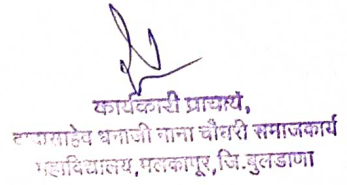 कार्यकारी प्राचार्य,
धनाजी नाना चौधरी समाजकार्य
महाविद्यालय, मलकापूर, जि.बुलडाणा